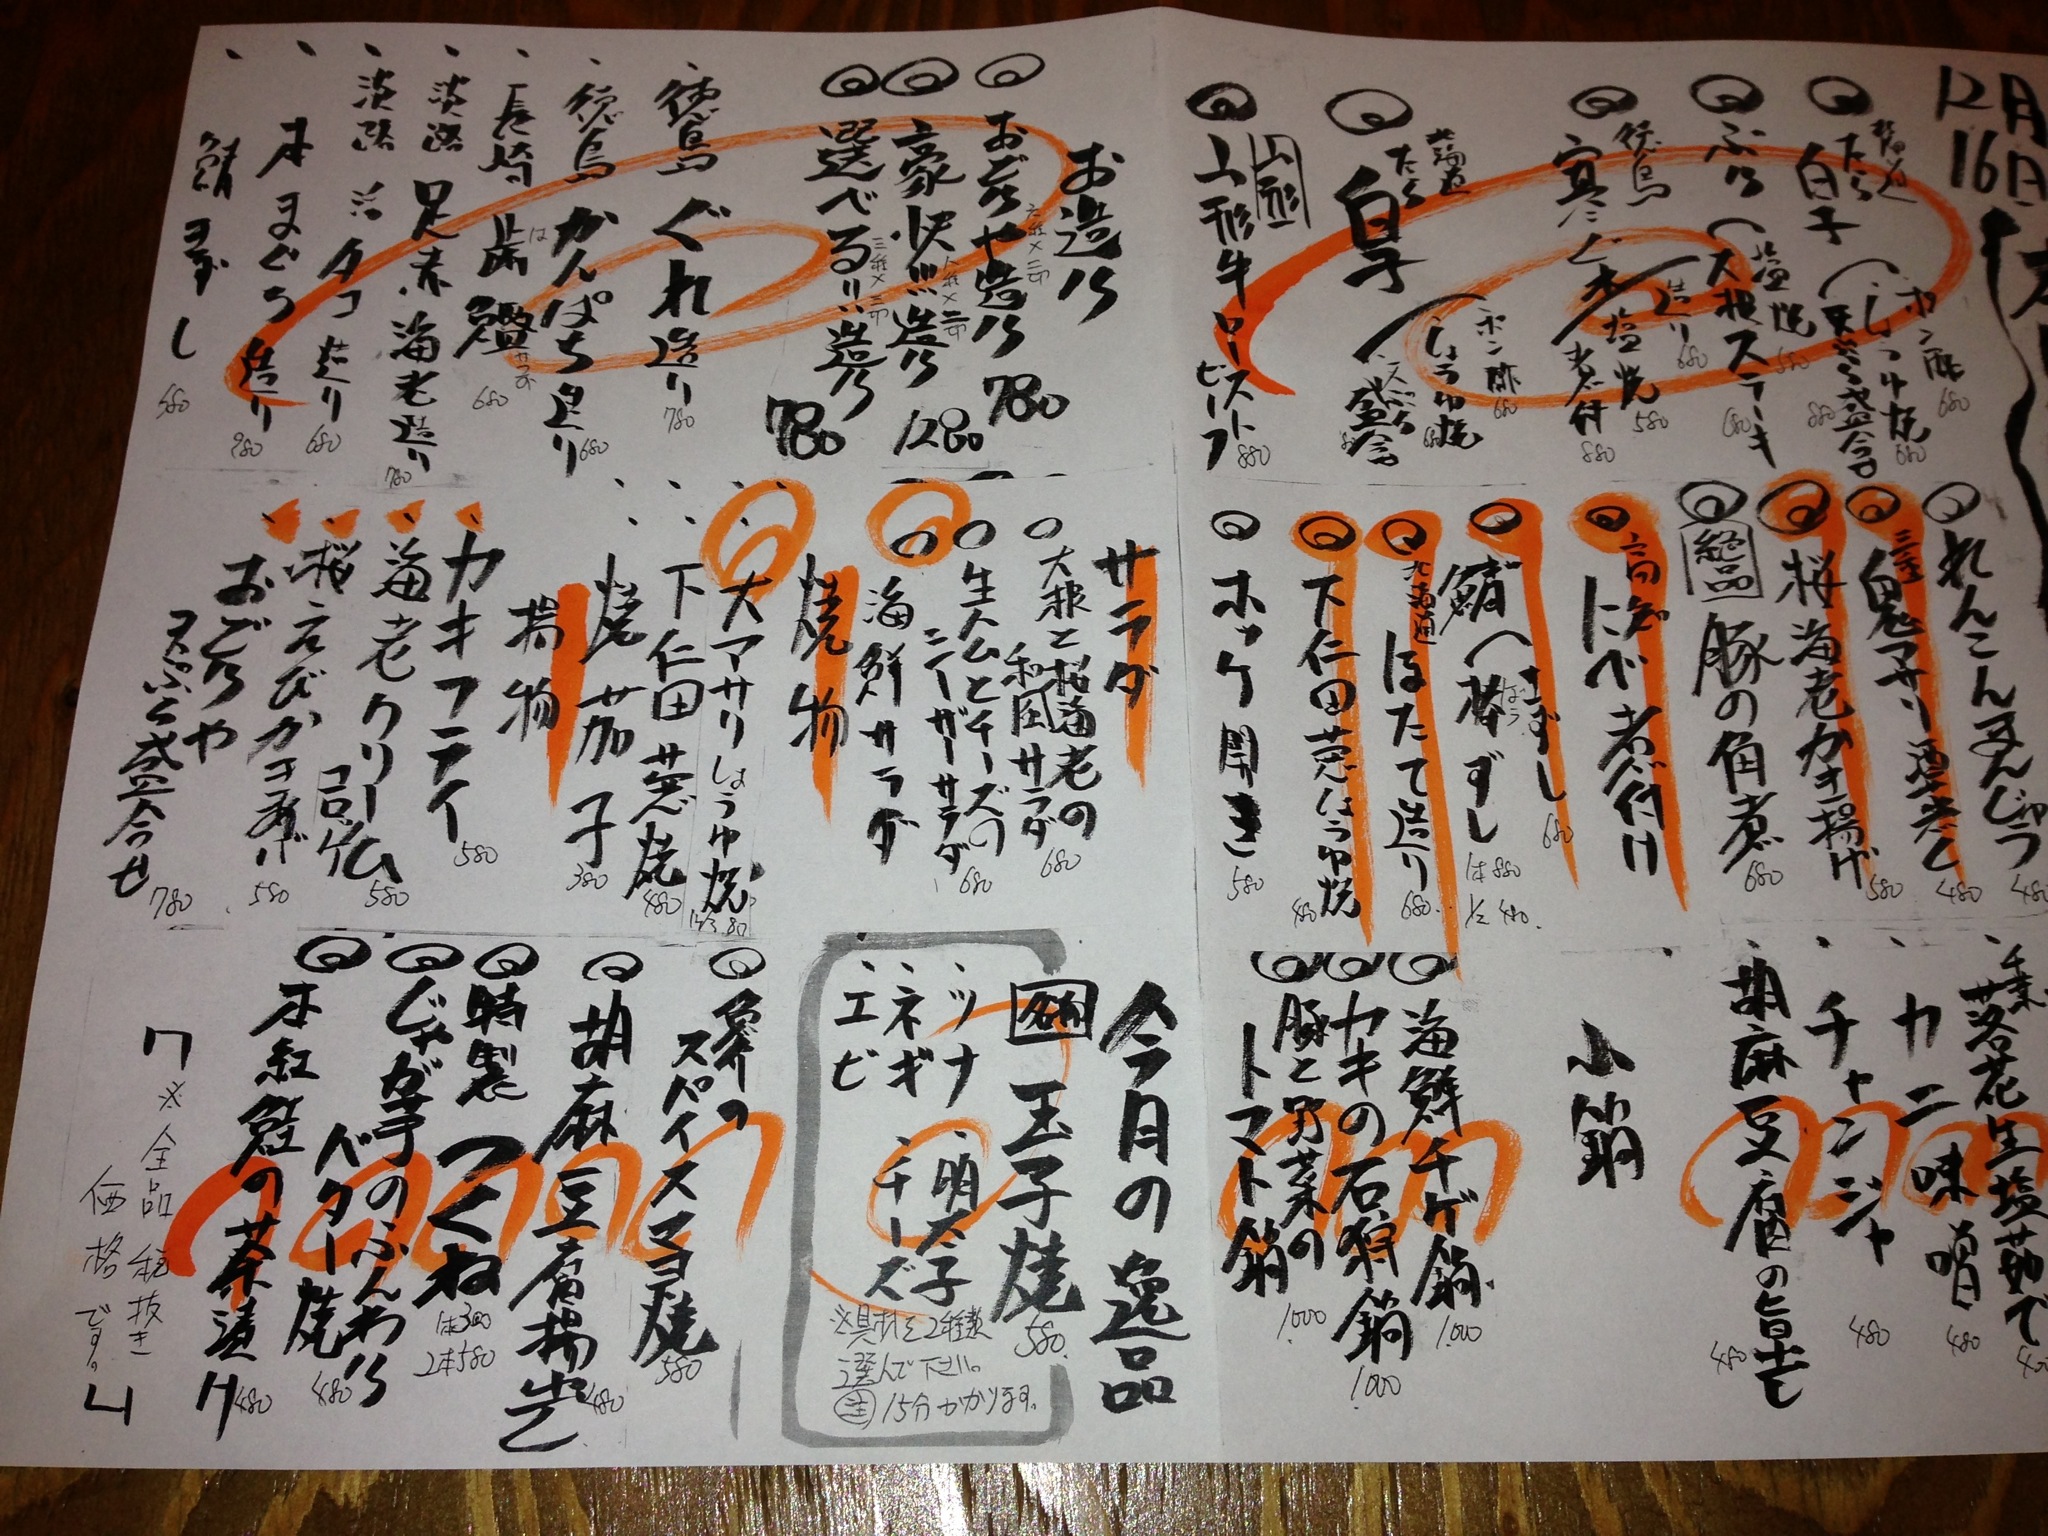 12月
16日
北海道
たら
白子
ポン酢 680
しょうゆ焼 680
天ぷら盛合 880
ぶり
塩焼 680
造り 680
大根ステーキ 680
徳島
塩焼 580
煮付 880
北海道
たら
白子
ポン酢 680
しょうゆ焼
天ぷら
盛合
山形
山形牛ローストビーフ 880
お造り
おどりや造り 780
豪快造り 1280
三種×三切
選べる造り 780
徳島 ぐれ造り 780
徳島 かんぱち造り 680
長崎 歯鰹 680
は
かつお
淡路 足赤海老造り 780
淡路 活タコ造り 680
本まぐろ造り 980
鯖 680
れんこんまんじゅう 480
三重 鬼アサリ酒蒸し 480
桜海老かき揚げ 580
絶品 豚の角煮 680
高知 にべ煮付け
鯖
きずし 680
棒ずし 1本 880
ぼう
1/2 480
北海道 ほたて造り 680
下仁田葱しょうゆ焼 480
ホッケ開き 580
サラダ
大根と桜海老の
和風サラダ 680
生ハムとチーズの
シーザーサラダ 680
海鮮サラダ
焼物
大アサリしょうゆ焼
下仁田葱焼 480
焼茄子 380
揚物
カキフライ 580
海老クリーム
コロッケ 580
桜えびかき揚げ 580
おどりや
天ぷら盛合せ 780
千葉 落花生塩茹で
カニ味噌 480
チャンジャ 480
胡麻豆腐の旨煮 480
小鍋
海鮮チゲ鍋 1000
カキの石狩鍋 1000
豚と野菜の
トマト鍋 1000
今月の逸品
玉子焼 580
ツナ
ネギ
エビ
明太子
チーズ
※具材を2種類
選んで下さい。
15分かかります。
スパイスマヨ焼 580
胡麻豆腐揚出し 480
特製 つくね
1本300
2本580
じゃが芋のふんわり
バター焼 480
本紅鮭の茶漬け 480
※全品税抜き
価格です。